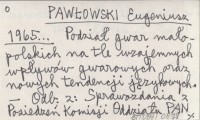 PAWŁOWSKI Eugeniusz
1965... Podział gwar mało-
polskich na tle wzajemnych
wpływów gwarowych oraz
nowych tendencji językowych.
– Odb. z: Sprawozdania z
Posiedzeń Komisji Oddziału PAN